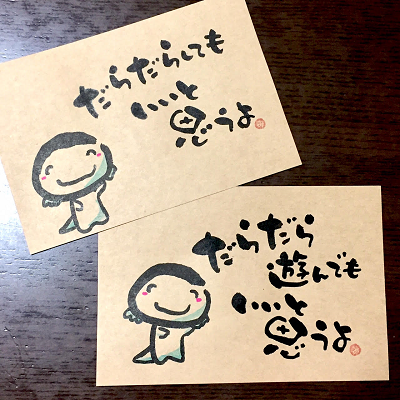 だらだらしても
いいと
思うよ
だらだら
遊んでも
いいと
思うよ